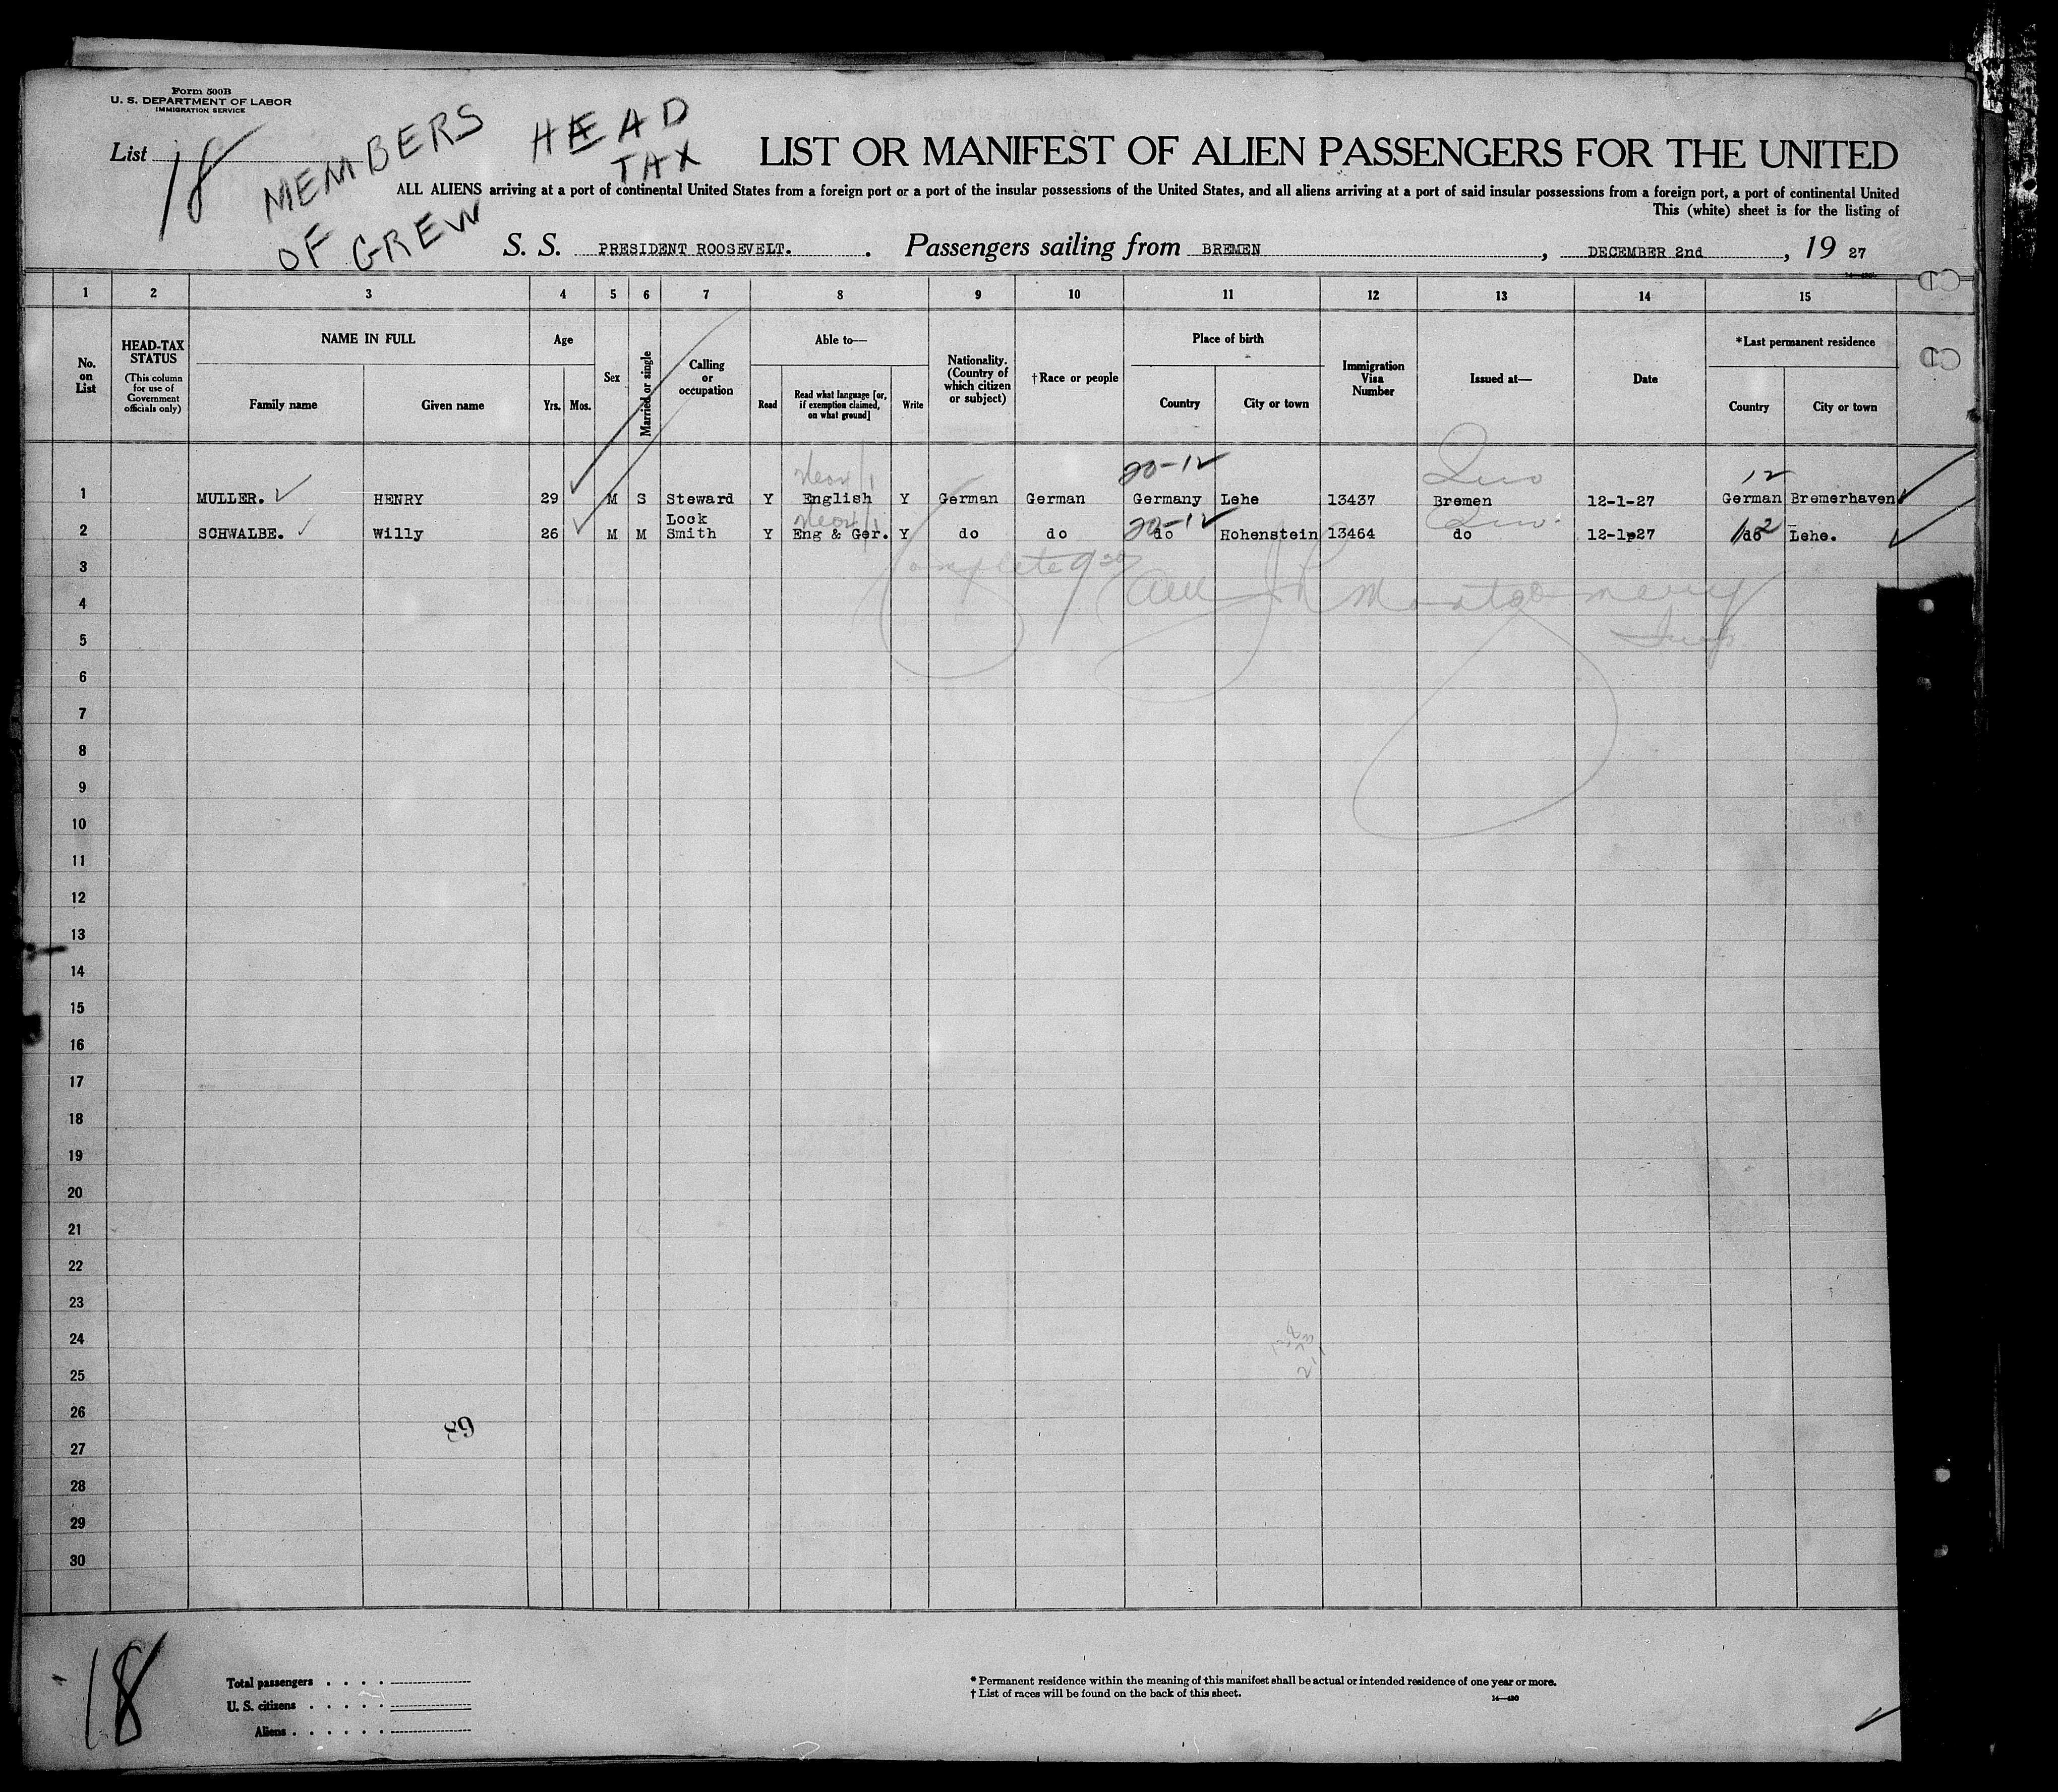 Form 500B
U. S. DEPARTMENT OF LABOR
IMMIGRATION SERVICE
List 18
MEMBERS
OF CREW
HEAD
TAX
LIST OR MANIFEST OF ALIEN PASSENGERS FOR THE UNITED
ALL ALIENS arriving at a port of continental United States from a foreign port or a port of the insular possessions of the United States, and all aliens arriving at a port of said insular possessions from a foreign port, a port of continental United
This (white) sheet is for the listing of
S. S. PRESIDENT ROOSEVELT. . Passengers sailing from BREMEN , DECEMBER 2nd , 19 27
1 2 3 4 5 6 7 8 9 10 11 12 13 14 15
No. on List
HEAD-TAX STATUS
(This column for use of Government officials only)
NAME IN FULL
Family name Given name
Age
Yrs. Mos.
Sex
Married or single
Calling or occupation
Able to—
Read
Read what language [or, if exemption claimed, on what ground]
Write
Nationality. (Country of which citizen or subject)
†Race or people
Place of birth
Country City or town
Immigration Visa Number
Issued at—
Date
*Last permanent residence
Country City or town
20-12 12
1 MULLER. HENRY 29 M S Steward Y English Y German German Germany Lehe 13437 Bremen 12-1-27 German Bremerhaven
20-12 12
2 SCHWALBE. Willy 26 M M Lock Smith Y Eng & Ger. Y do do do Hohenstein 13464 do 12-1-27 do Lehe.
3
Complete
4
Montgomery
5
Insp
6
7
8
9
10
11
12
13
14
15
16
17
18
19
20
21
22
23
24
25
26
89
27
28
29
30
18
Total passengers
U. S. citizens
Aliens
* Permanent residence within the meaning of this manifest shall be actual or intended residence of one year or more.
† List of races will be found on the back of this sheet.
14—430